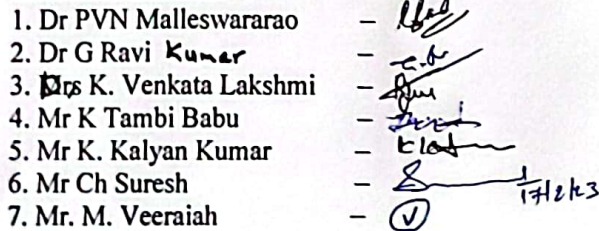 1. Dr PVN Malleswararao –
2. Dr G Ravi Kumar –
3. Drs K. Venkata Lakshmi –
4. Mr K Tambi Babu –
5. Mr K. Kalyan Kumar –
6. Mr Ch Suresh – 17/2/23
7. Mr. M. Veeraiah –